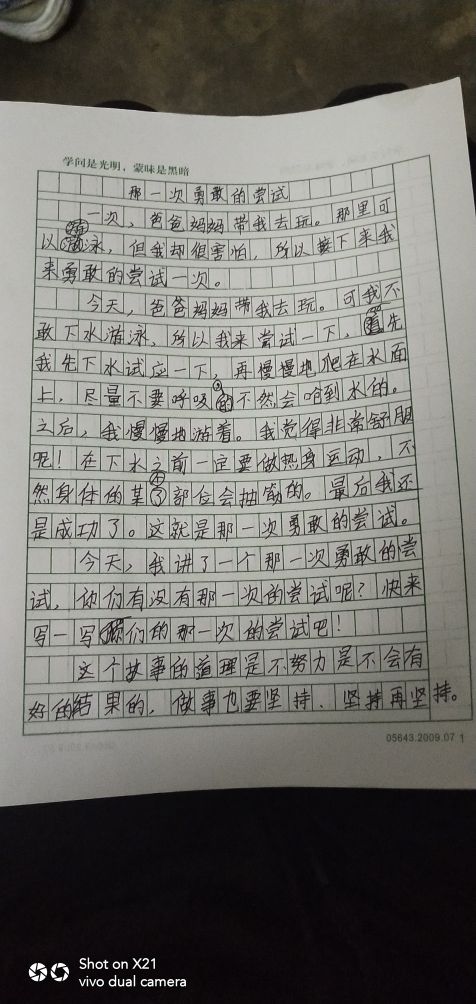 学问是光明，蒙昧是黑暗
那一次勇敢的尝试
一次，爸爸妈妈带我去玩。那里可
以游泳，但我却很害怕，所以接下来我
来勇敢的尝试一次。
今天，爸爸妈妈带我去玩。可我不
敢下水游泳，所以我来尝试一下，首先
我先下水试应一下，再慢慢地爬在水面
上，尽量不要呼吸的不然会呛到水的。
之后，我慢慢地游着。我觉得非常舒服
呢！在下水之前一定要做热身运动，不
然身体的某个部位会抽筋的。最后我还
是成功了。这就是那一次勇敢的尝试。
今天，我讲了一个那一次勇敢的尝
试，你们有没有那一次的尝试呢？快来
写一写你们的那一次的尝试吧！
这个故事的道理是不努力是不会有
好的结果的，做事也要坚持、坚持再坚持。
05643.2009.07 1
Shot on X21
vivo dual camera